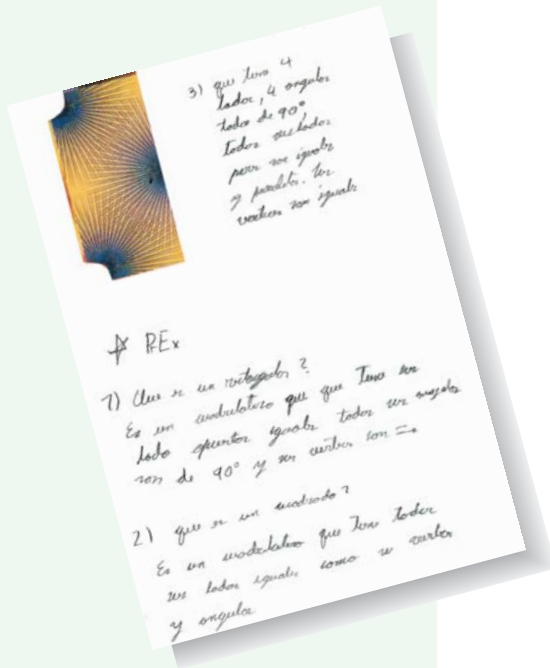 3) que tiene 4
lados, 4 angulos
todos de 90°
todos sus lados
pero son iguales
y paralelos. los
vertices son iguales
REx
1) Que es un rectangulo?
Es un cuadrilatero que que Tiene sus
lado opuestos iguales todos sus angulos
son de 90° y sus vertices son =
2) que es un cuadrado?
Es un cuadrilatero que Tiene todos
sus lados iguales como sus vertices
y angulos